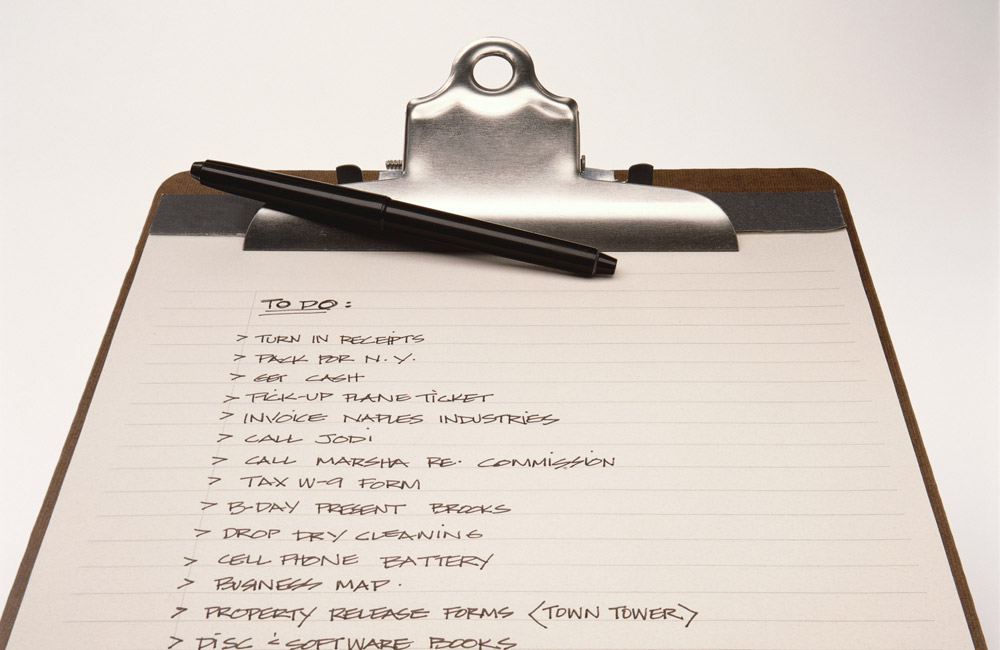 TO DO:
> TURN IN RECEIPTS
> PACK FOR N.Y.
> GET CASH
> PICK-UP PLANE TICKET
> INVOICE NAPLES INDUSTRIES
> CALL JODI
> CALL MARSHA RE. COMMISSION
> TAX W-9 FORM
> B-DAY PRESENT BROOKS
> DROP DRY CLEANING
> CELL PHONE BATTERY
> BUSINESS MAP.
> PROPERTY RELEASE FORMS <TOWN TOWER>
> DISC & SOFTWARE BOOKS